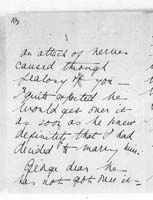 an attack of nerves
caused through
jealousy of you —
I quite expected he
would get over it
as soon as he knew
definitely that I had
decided to marry him.
George dear he
has not got over it —